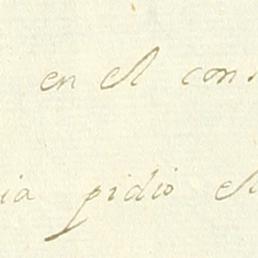 en el con
ia pidio el